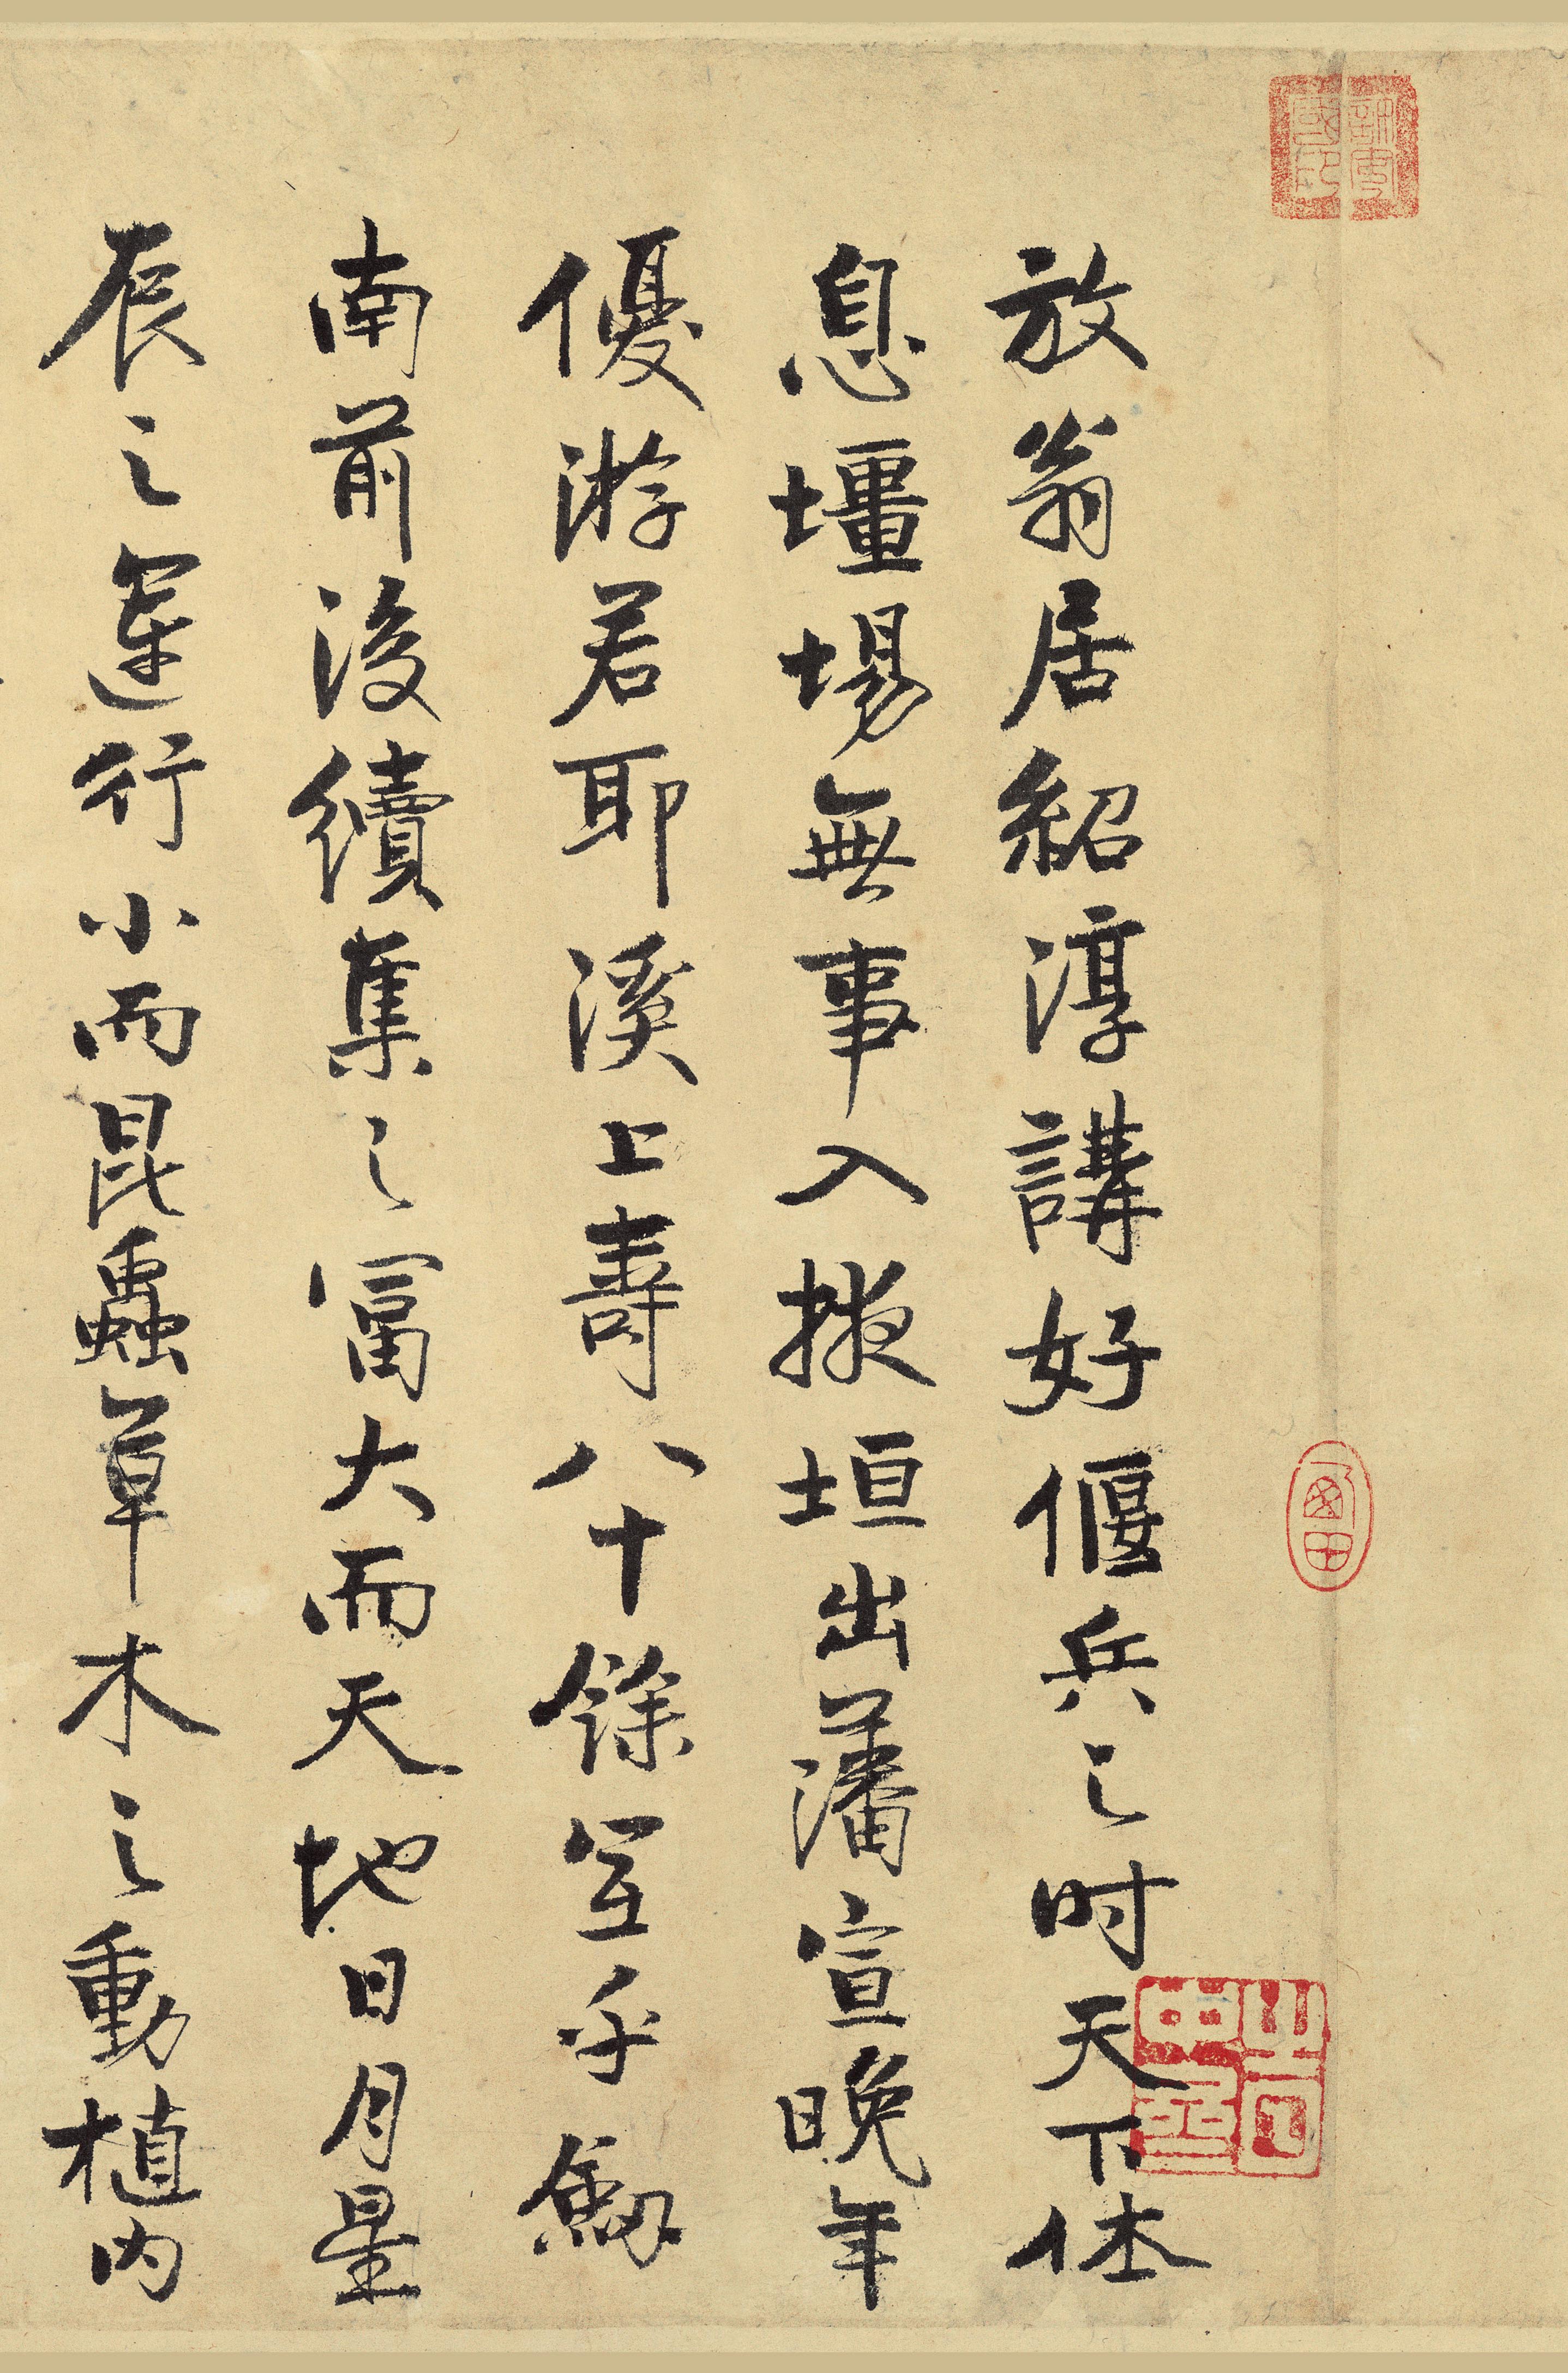 放翁居紹淳講好偃兵之时天下休
息壃場無事入掖垣出藩宣晚年
優游若耶溪上壽八十餘宜乎劔
南前後續集之富大而天地日月星
辰之運行小而昆蟲草木之動植内